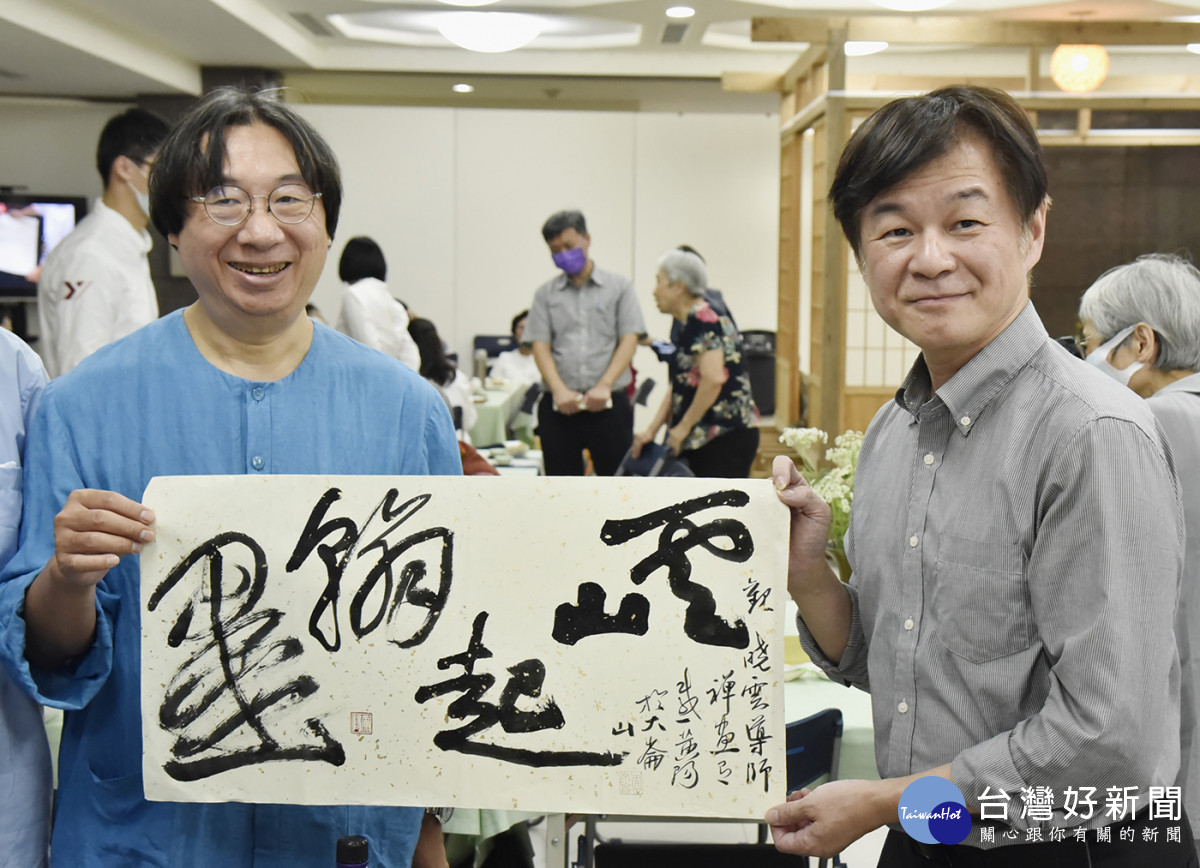 雲山起翰墨
觀 曉雲導師
禪畫有
於大崙
山
TaiwanHot
台灣好新聞
關心跟你有關的新聞